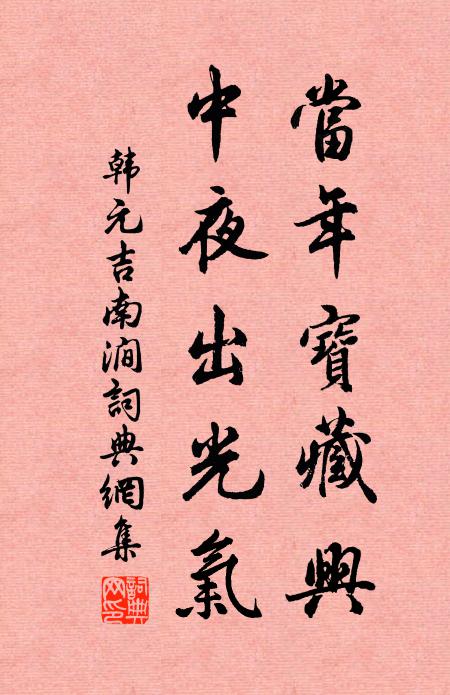 當年寶藏興
中夜出光氣
韩元吉南澗詞典網集
詞典网印